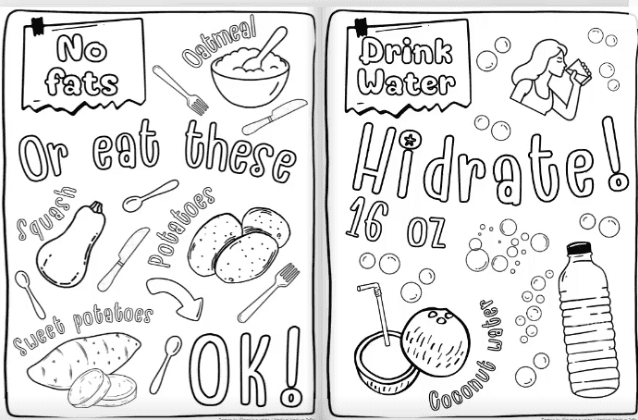 No
fats
Oatmeal
Or eat these
Squash
Potatoes
Sweet potatoes
OK!
Drink
Water
Hidrate!
16 oz
Coconut water